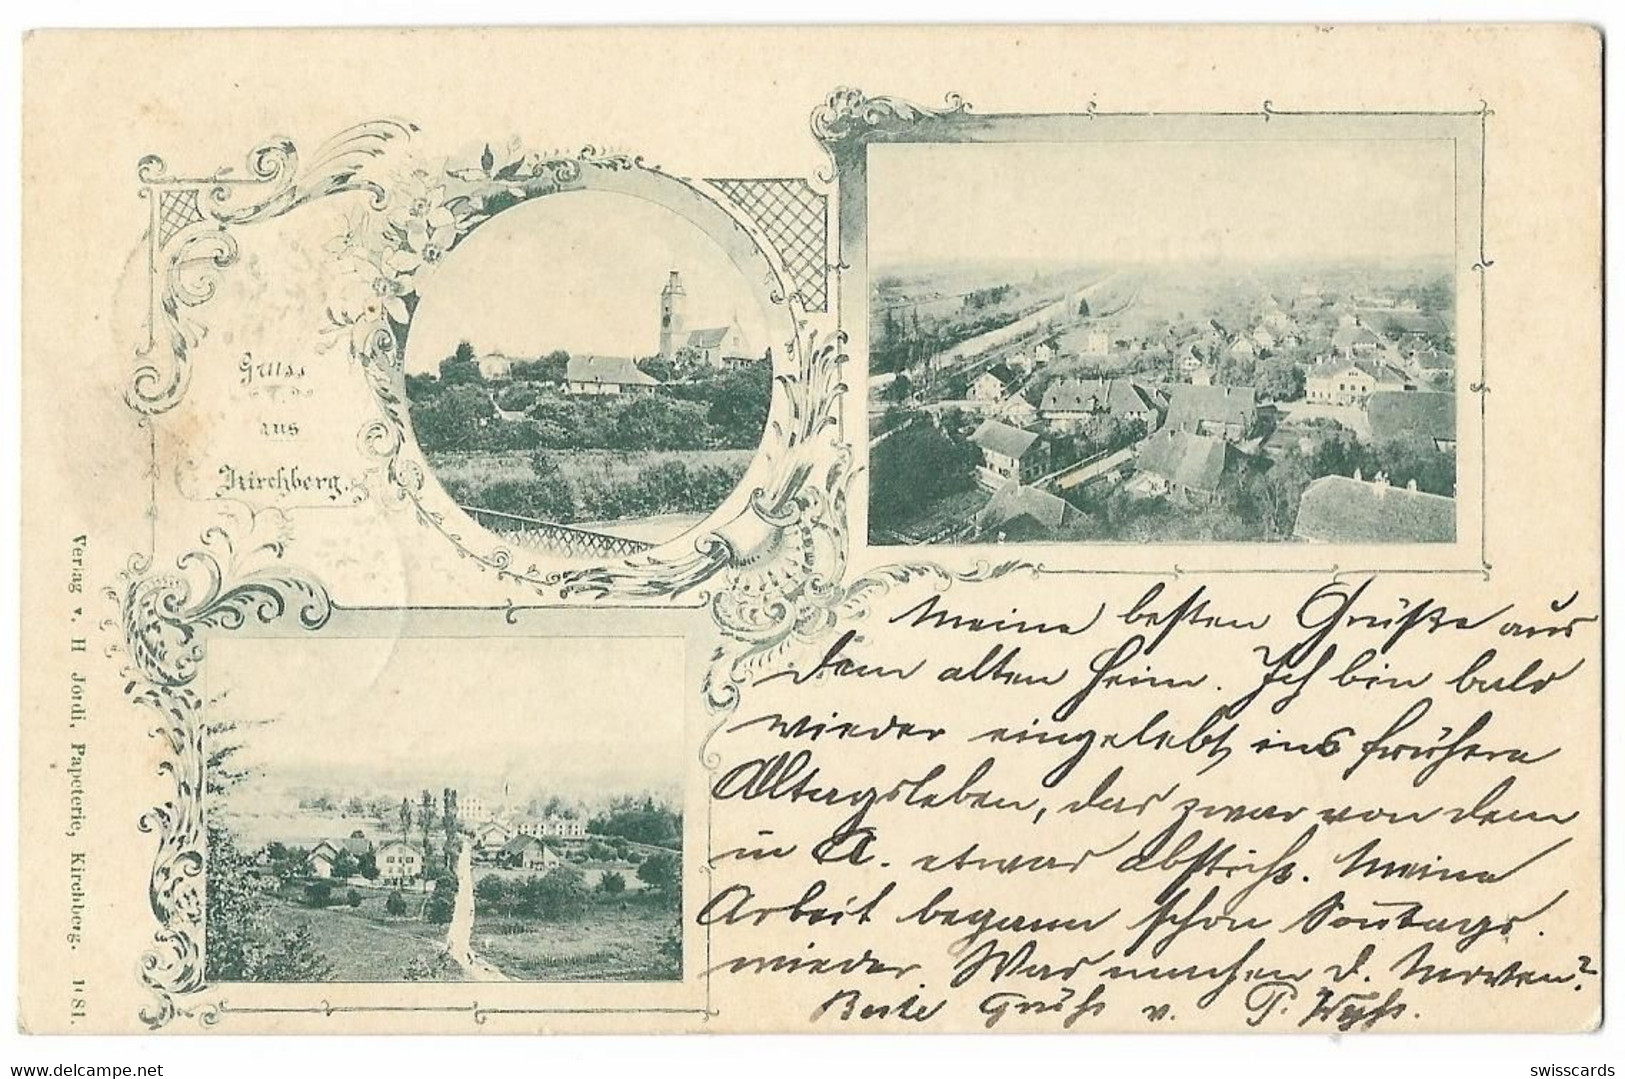 Gruss
aus
Kirchberg.
Verlag v. H Jordi, Papeterie, Kirchberg. 1181.
Meine besten Grüße aus
dem alten Heim. Ich bin bald
wieder eingelebt ins frühere
Alltagsleben, das zwar von dem
in A. etwas absticht. Meine
Arbeit begann schon Sonntags.
wieder Was machen d. Nerven?
Beste Grüße v. P. Wyss.
www.delcampe.net
swisscards